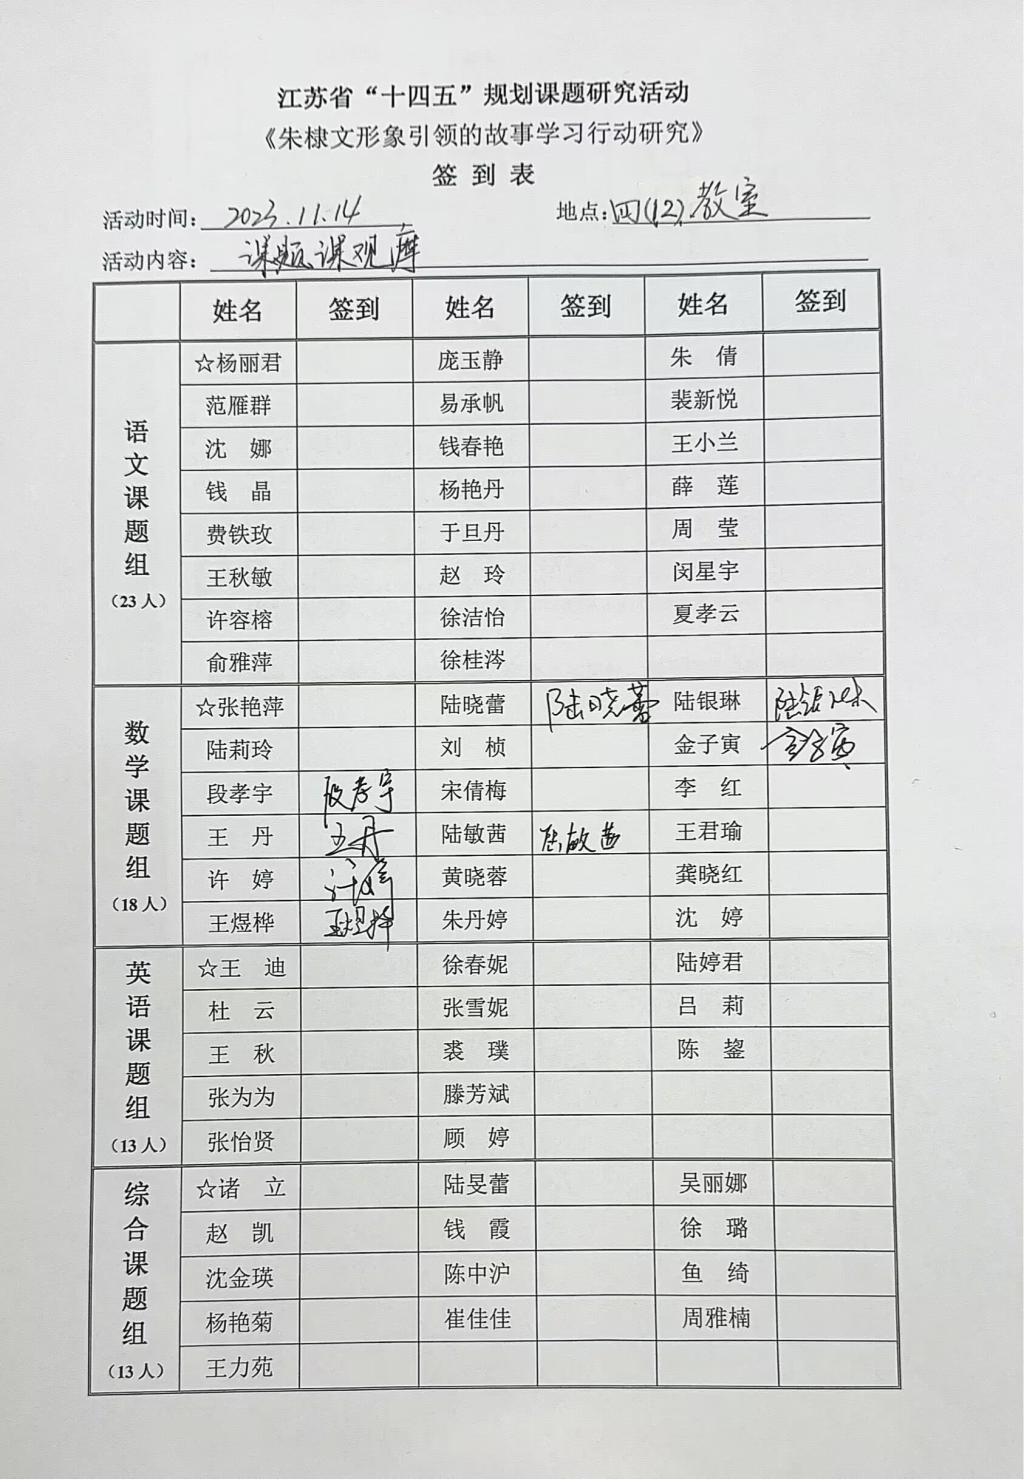 江苏省“十四五”规划课题研究活动
《朱棣文形象引领的故事学习行动研究》
签 到 表
活动时间: 2023.11.14 地点: 四(12)教室
活动内容: 课题课观摩
姓名 签到 姓名 签到 姓名 签到
语文课题组 (23人)
☆杨丽君 庞玉静 朱 倩
范雁群 易承帆 裴新悦
沈 娜 钱春艳 王小兰
钱 晶 杨艳丹 薛 莲
费铁玫 于旦丹 周 莹
王秋敏 赵 玲 闵星宇
许容榕 徐洁怡 夏孝云
俞雅萍 徐桂涔
数学课题组 (18人)
☆张艳萍 陆晓蕾 陆晓蕾 陆银琳 陆银琳
陆莉玲 刘 桢 金子寅 金子寅
段孝宇 段孝宇 宋倩梅 李 红
王 丹 王丹 陆敏茜 陆敏茜 王君瑜
许 婷 许婷 黄晓蓉 龚晓红
王煜桦 王煜桦 朱丹婷 沈 婷
英语课题组 (13人)
☆王 迪 徐春妮 陆婷君
杜 云 张雪妮 吕 莉
王 秋 裘 璞 陈 鋆
张为为 滕芳斌
张怡贤 顾 婷
综合课题组 (13人)
☆诸 立 陆旻蕾 吴丽娜
赵 凯 钱 霞 徐 璐
沈金瑛 陈中沪 鱼 绮
杨艳菊 崔佳佳 周雅楠
王力苑